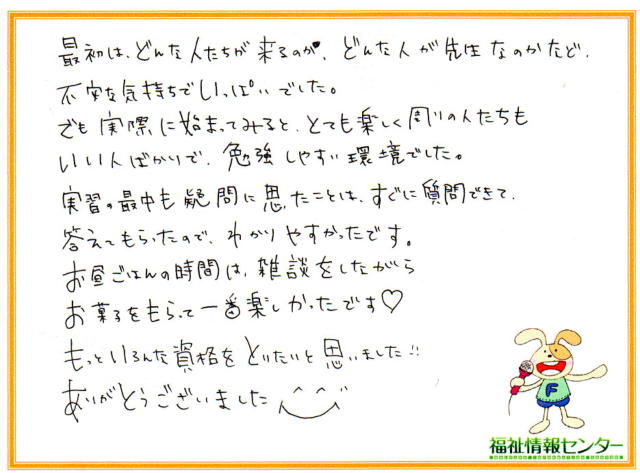 最初は、どんな人たちが来るのか、どんな人が先生なのかなど、
不安な気持ちでいっぱいでした。
でも実際に始まってみると、とても楽しく周りの人たちも
いい人ばかりで、勉強しやすい環境でした。
実習の最中も疑問に思ったことは、すぐに質問できて、
答えてもらったので、わかりやすかったです。
お昼ごはんの時間は、雑談をしながら
お菓子をもらって一番楽しかったです♡
もっといろんな資格をとりたいと思いました!!
ありがとうございました
F
福祉情報センター